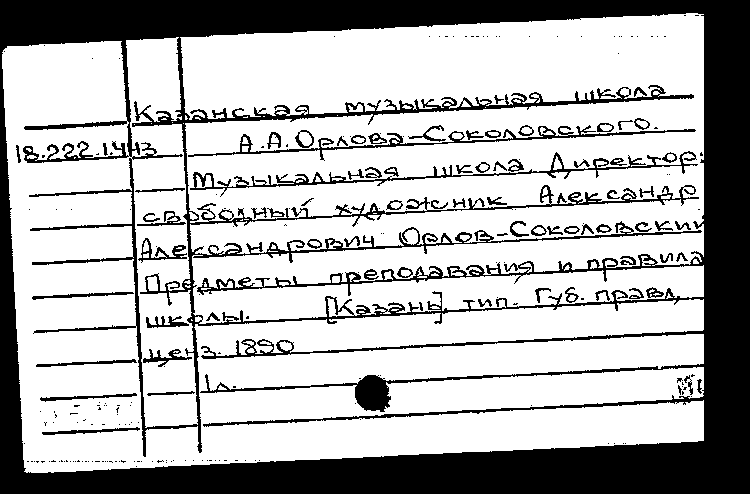 Казанская музыкальная школа
18.222.1.443 А.А.Орлова-Соколовского.
Музыкальная школа. Директор:
свободный художник Александр
Александрович Орлов-Соколовский
Предметы преподавания и правила
школы. [Казань], тип. Губ. правл,
ценз. 1890
1л.